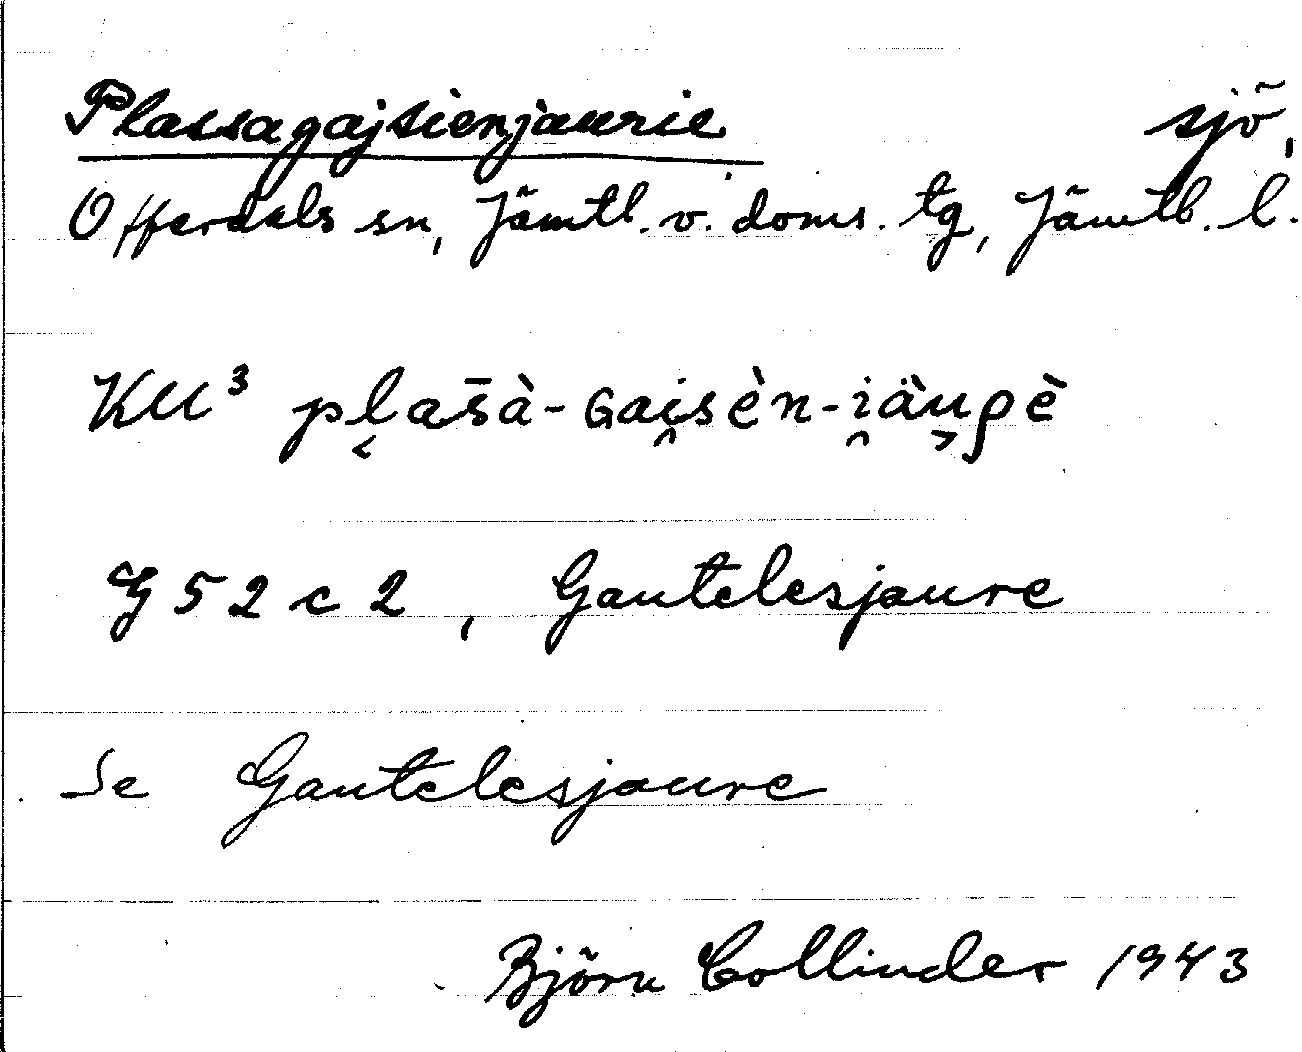 Plassagajsienjaurie sjö,
Offerdals sn, Jämtl. v. doms. tg, Jämtl. l.
KU³ pl̬as̄à-Gai̯sèn-i̯äu̬ρè
G 52 c 2, Gautelesjaure
Se Gautelesjaure
Björn Collinder 1943